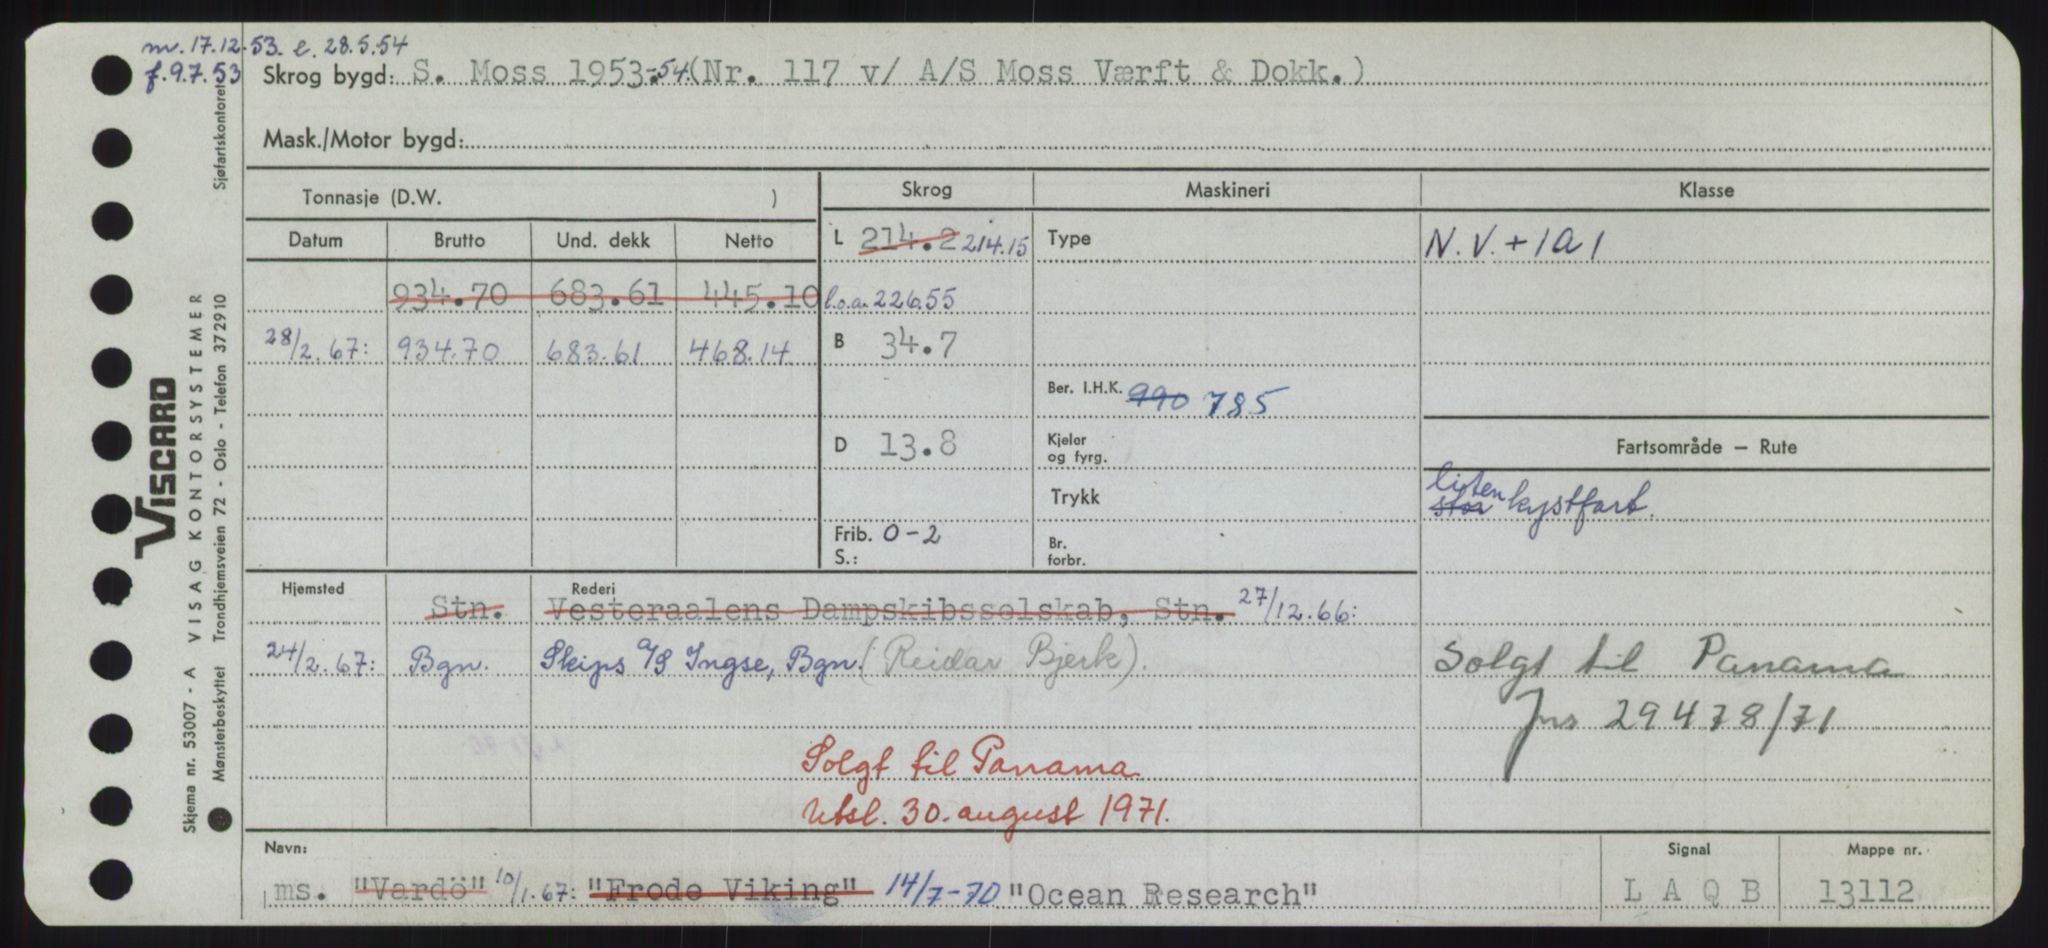 m. 17.12.53. e. 28.5.54
f. 9.7.53 Skrog bygd: S. Moss 1953-54. (Nr. 117 v/ A/S Moss Værft & Dokk.)
Mask./Motor bygd:
Tonnasje (D.W. ) Skrog Maskineri Klasse
Datum Brutto Und. dekk Netto L 214.2 214.15 Type N.V. + 1A1
934.70 683.61 445.10 l.o.a. 226.55
28/2.67: 934.70 683.61 468.14 B 34.7
Ber. I.H.K. 990 785
D 13.8 Kjeler og fyrg. Fartsområde – Rute
Trykk liten stor kystfart.
Frib. 0-2 Br. forbr.
S.:
Hjemsted Stn. Rederi Vesteraalens Dampskibsselskab, Stn. 27/12.66:
24/2.67: Bgn. Skips A/S Ingse, Bgn. (Reidar Bjerk). Solgt til Panama
Jnr 29478/71
Solgt til Panama
Utsl. 30. august 1971.
Navn: Signal Mappe nr.
ms. "Vardö" 10/1.67: "Frode Viking" 14/7-70 "Ocean Research" L A Q B 13112
VISCARD
Skjema nr. 53007 - A VISAG KONTORSYSTEMER
Mønsterbeskyttet Trondhjemsveien 72 - Oslo - Telefon 372910 Sjøfartskontoret